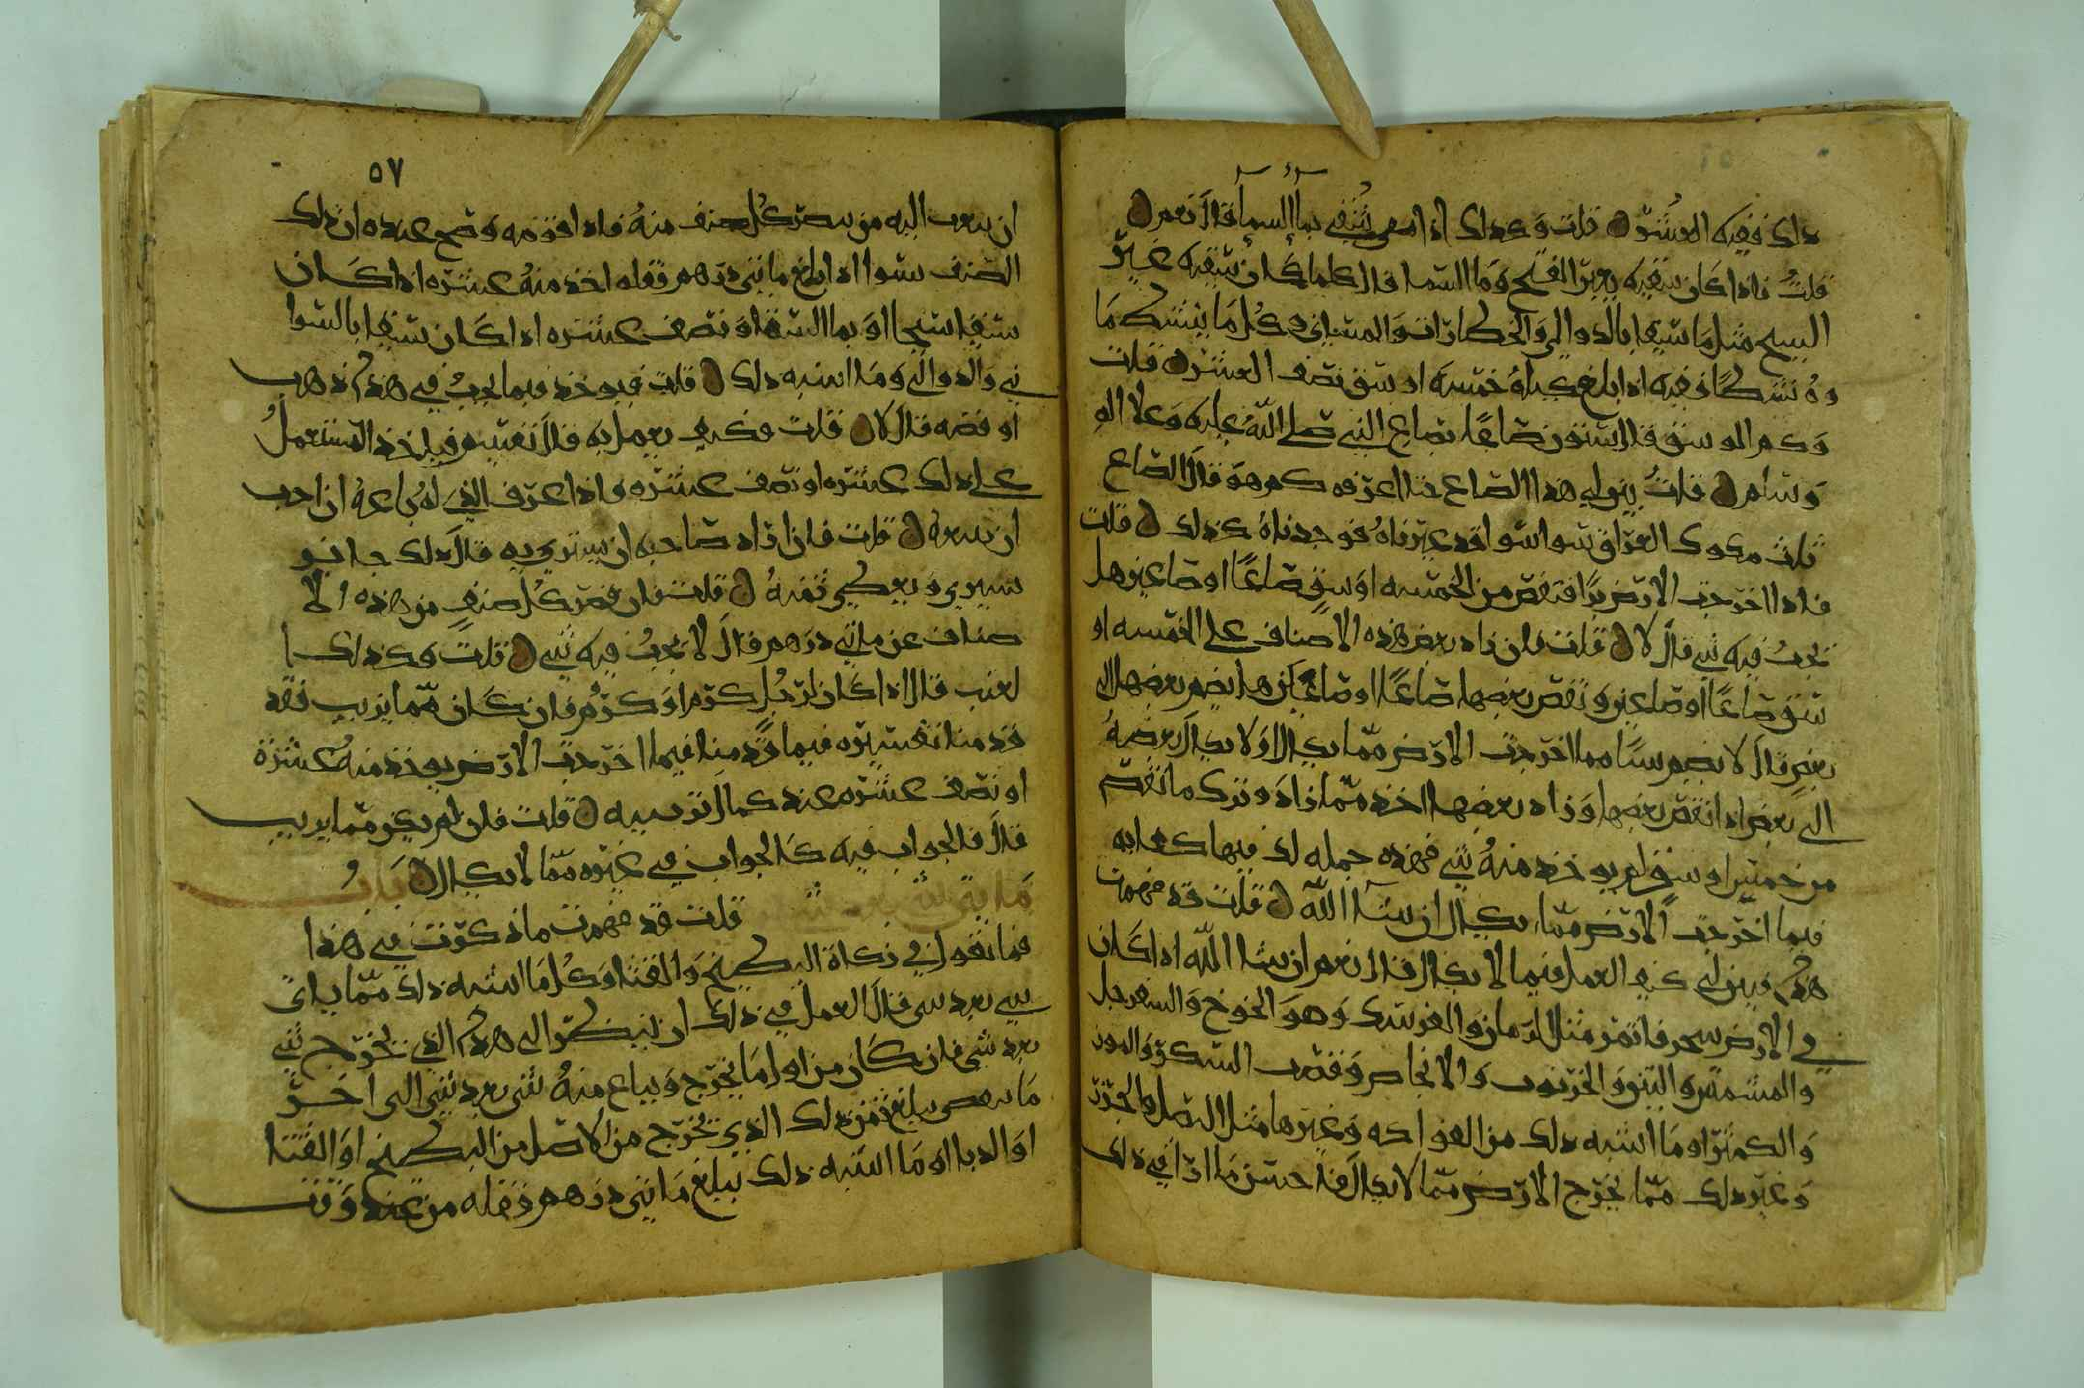 ذلك ففيه العشر قلت وكذلك اذا سقي بما السما قال نعم
قلت فاذا كان سقيه بغير الفتح وما السما قال كلما كان سقيه غير
السيح مثل ما سقي بالدوالي والخطارات والسواني وكل ما ينشط
نشطا ففيه اذا بلغ كيله خمسة اوسق نصف العشر قلت
وكم الوسق قال ستون صاعا بصاع النبي صلى الله عليه وعلى اله
وسلم قلت بين لي هذا الصاع حتى اعرفه كم هو قال الصاع
ثلث مكوك العراق سواسوا قد عيرناه فوجدناه كذلك قلت
فاذا اخرجت الارض برا فنقص من الخمسة اوسق صاعا او صاعين هل
يجب فيه شي قال لا قلت فان زاد بعض هذه الاصناف على الخمسه او
سق صاعا او صاعين ونقص بعضها صاعا او صاعين هل يضم بعضها الى
بعض قال لا يضم شيا مما اخرجت الارض مما يكال او لا يكال بعضه
الى بعض اذا نقص بعضها وزاد بعضها اخذ مما زاد وترك ما نقص
من خمسة اوسق لم يوخذ منه شي فهذه جملة لك فيها كفايه
فيما اخرجت الارض مما يكال ان شا الله قلت قد فهمت
هذا فبين لي كيف العمل فيما لا يكال قال نعم ان شا الله اذا كان
في الارض شجر فاثمر مثل الرمان والفرسك وهو الخوخ والسفرجل
والمشمش والتين والخرنوب والانجاص وقصب السكر والموز
والكمثرا وما اشبه ذلك من الفواكه وغيرها مثل البصل والجزر
وغير ذلك مما يخرج الارض مما لا يكال فاحسن ما ارا في ذلك
٥٧
ان يبعث اليه من يبصر كل صنف منه فاذا قومه وصح عنده ان ذلك
الصنف يسوا اذا بلغ مائتي درهم قفلة اخذ منه عشره اذا كان
سقيا سيحا او بما السما او نصف عشره اذا كان سقيا بالسوا
ني والدوالي وما اشبه ذلك قلت فيوخذ فيما يجب في هذا ذهب
او فضه قال لا قلت فكيف يعمل به قال نقسيم فياخذ المستعمل
على ذلك عشره او نصف عشره واذا عرف الذي له باعه ان احب
ان يبيعه قلت فان اراد صاحبه ان يشتريه قال ذلك جائز
يشتري ويعطي ثمنه قلت فان قصر كل صنف من هذه الا
صناف عن مائتي درهم قال لا يجب فيه شي قلت وكذلك ا
لعنب قال اذا كان لرجل كرم او كروم فان كان مما يزبب فقد
قدمنا تفسيره فيما قدمنا فيما اخرجت الارض يوخذ منه عشره
او نصف عشره عند كمال تزبيبه قلت فان لم يكن مما يزبب
قال فالجواب فيه كالجواب في غيره مما لا يكال باب
ما ياتي شي بعد شي
قلت قد فهمت ما ذكرت في هذا
فما تقول في زكاة البطيخ والقثا وكل ما اشبه ذلك مما ياتي
شي بعد شي قال العمل في ذلك ان ينظر الى هذا الذي يخرج شي
بعد شي فان كان من اول ما يخرج ويباع منه شي بعد شي الى اخر
ما يمضي يبلغ ثمن ذلك الذي يخرج من الاصل من البطيخ او القثا
او الدبا او ما اشبه ذلك يبلغ مائتي درهم قفله من عند وقت